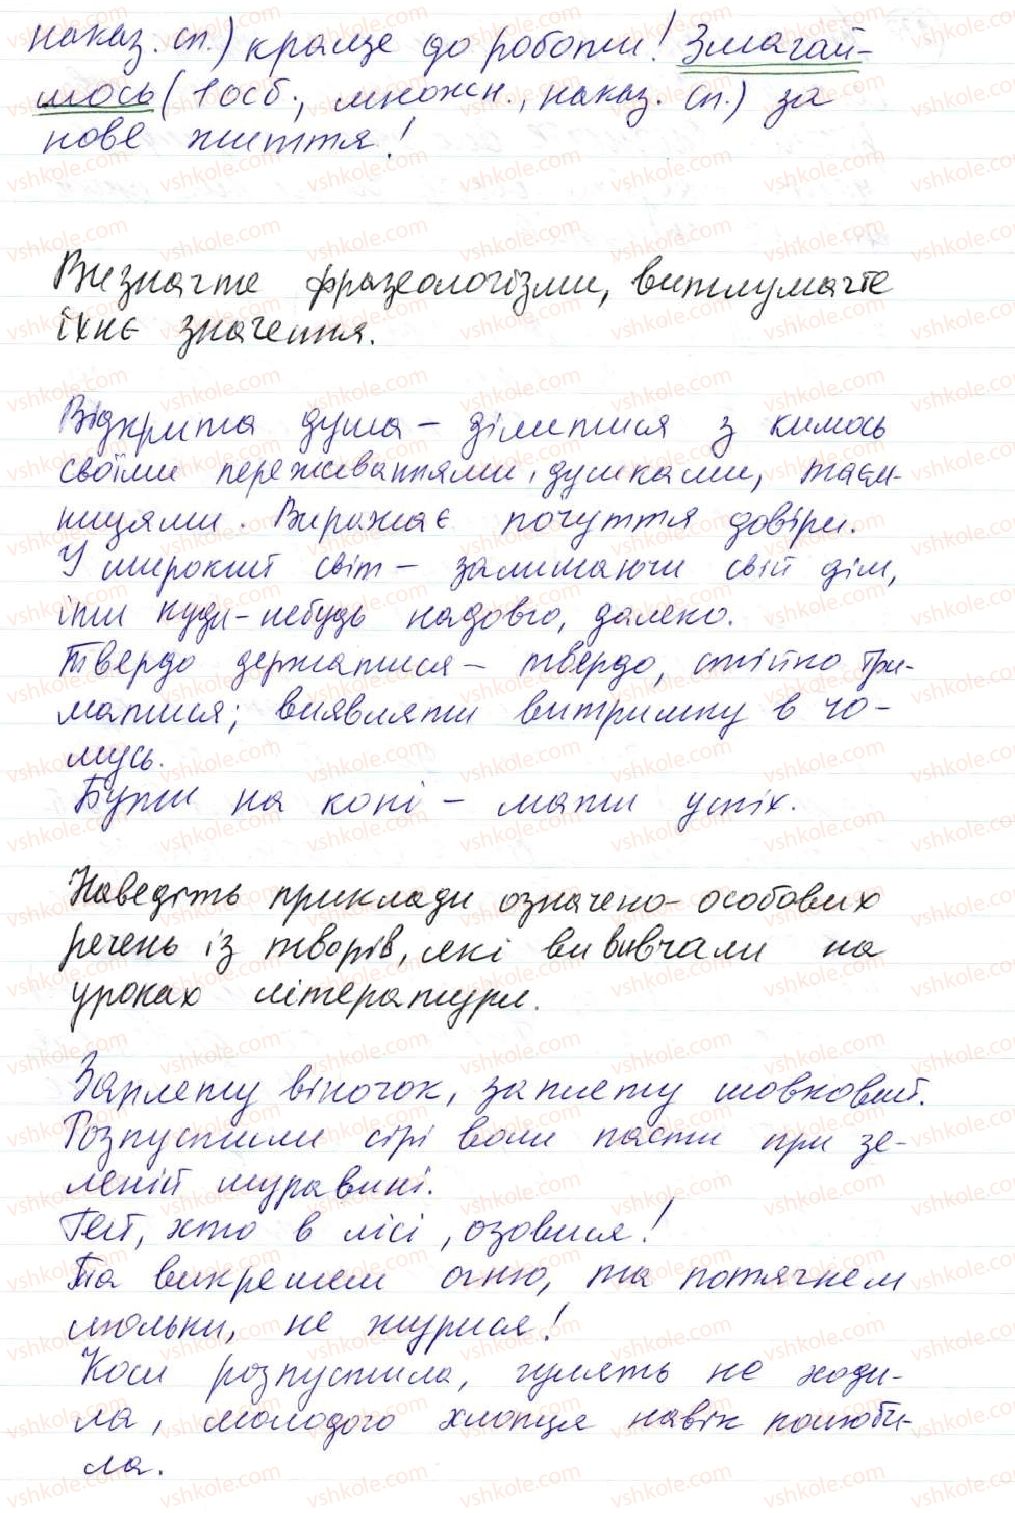 наказ. сп.) краще до роботи! Змагай-
мось (1 осб., множн., наказ. сп.) за
нове життя!
Визначте фразеологізми, витлумачте
їхнє значення.
Відкрита душа – ділитися з кимось
своїми переживаннями, думками, таєм-
ницями. Виражає почуття довіри.
У широкий світ – залишаючи свій дім,
іти куди-небудь надовго, далеко.
Твердо держатися – твердо, стійко три-
матися; виявляти витримку в чо-
мусь.
Бути на коні – мати успіх.
Наведіть приклади означено-особових
речень із творів, які ви вивчали на
уроках літератури.
Заплету віночок, заплету шовковий.
Розпустили сірі воли пасти при зе-
леній муравині.
Гей, хто в лісі, озовися!
Та викрешем огню, та потягнем
люльки, не журися!
Коси розпустила, гулять не ходи-
ла, молодого хлопця навік полюби-
ла.